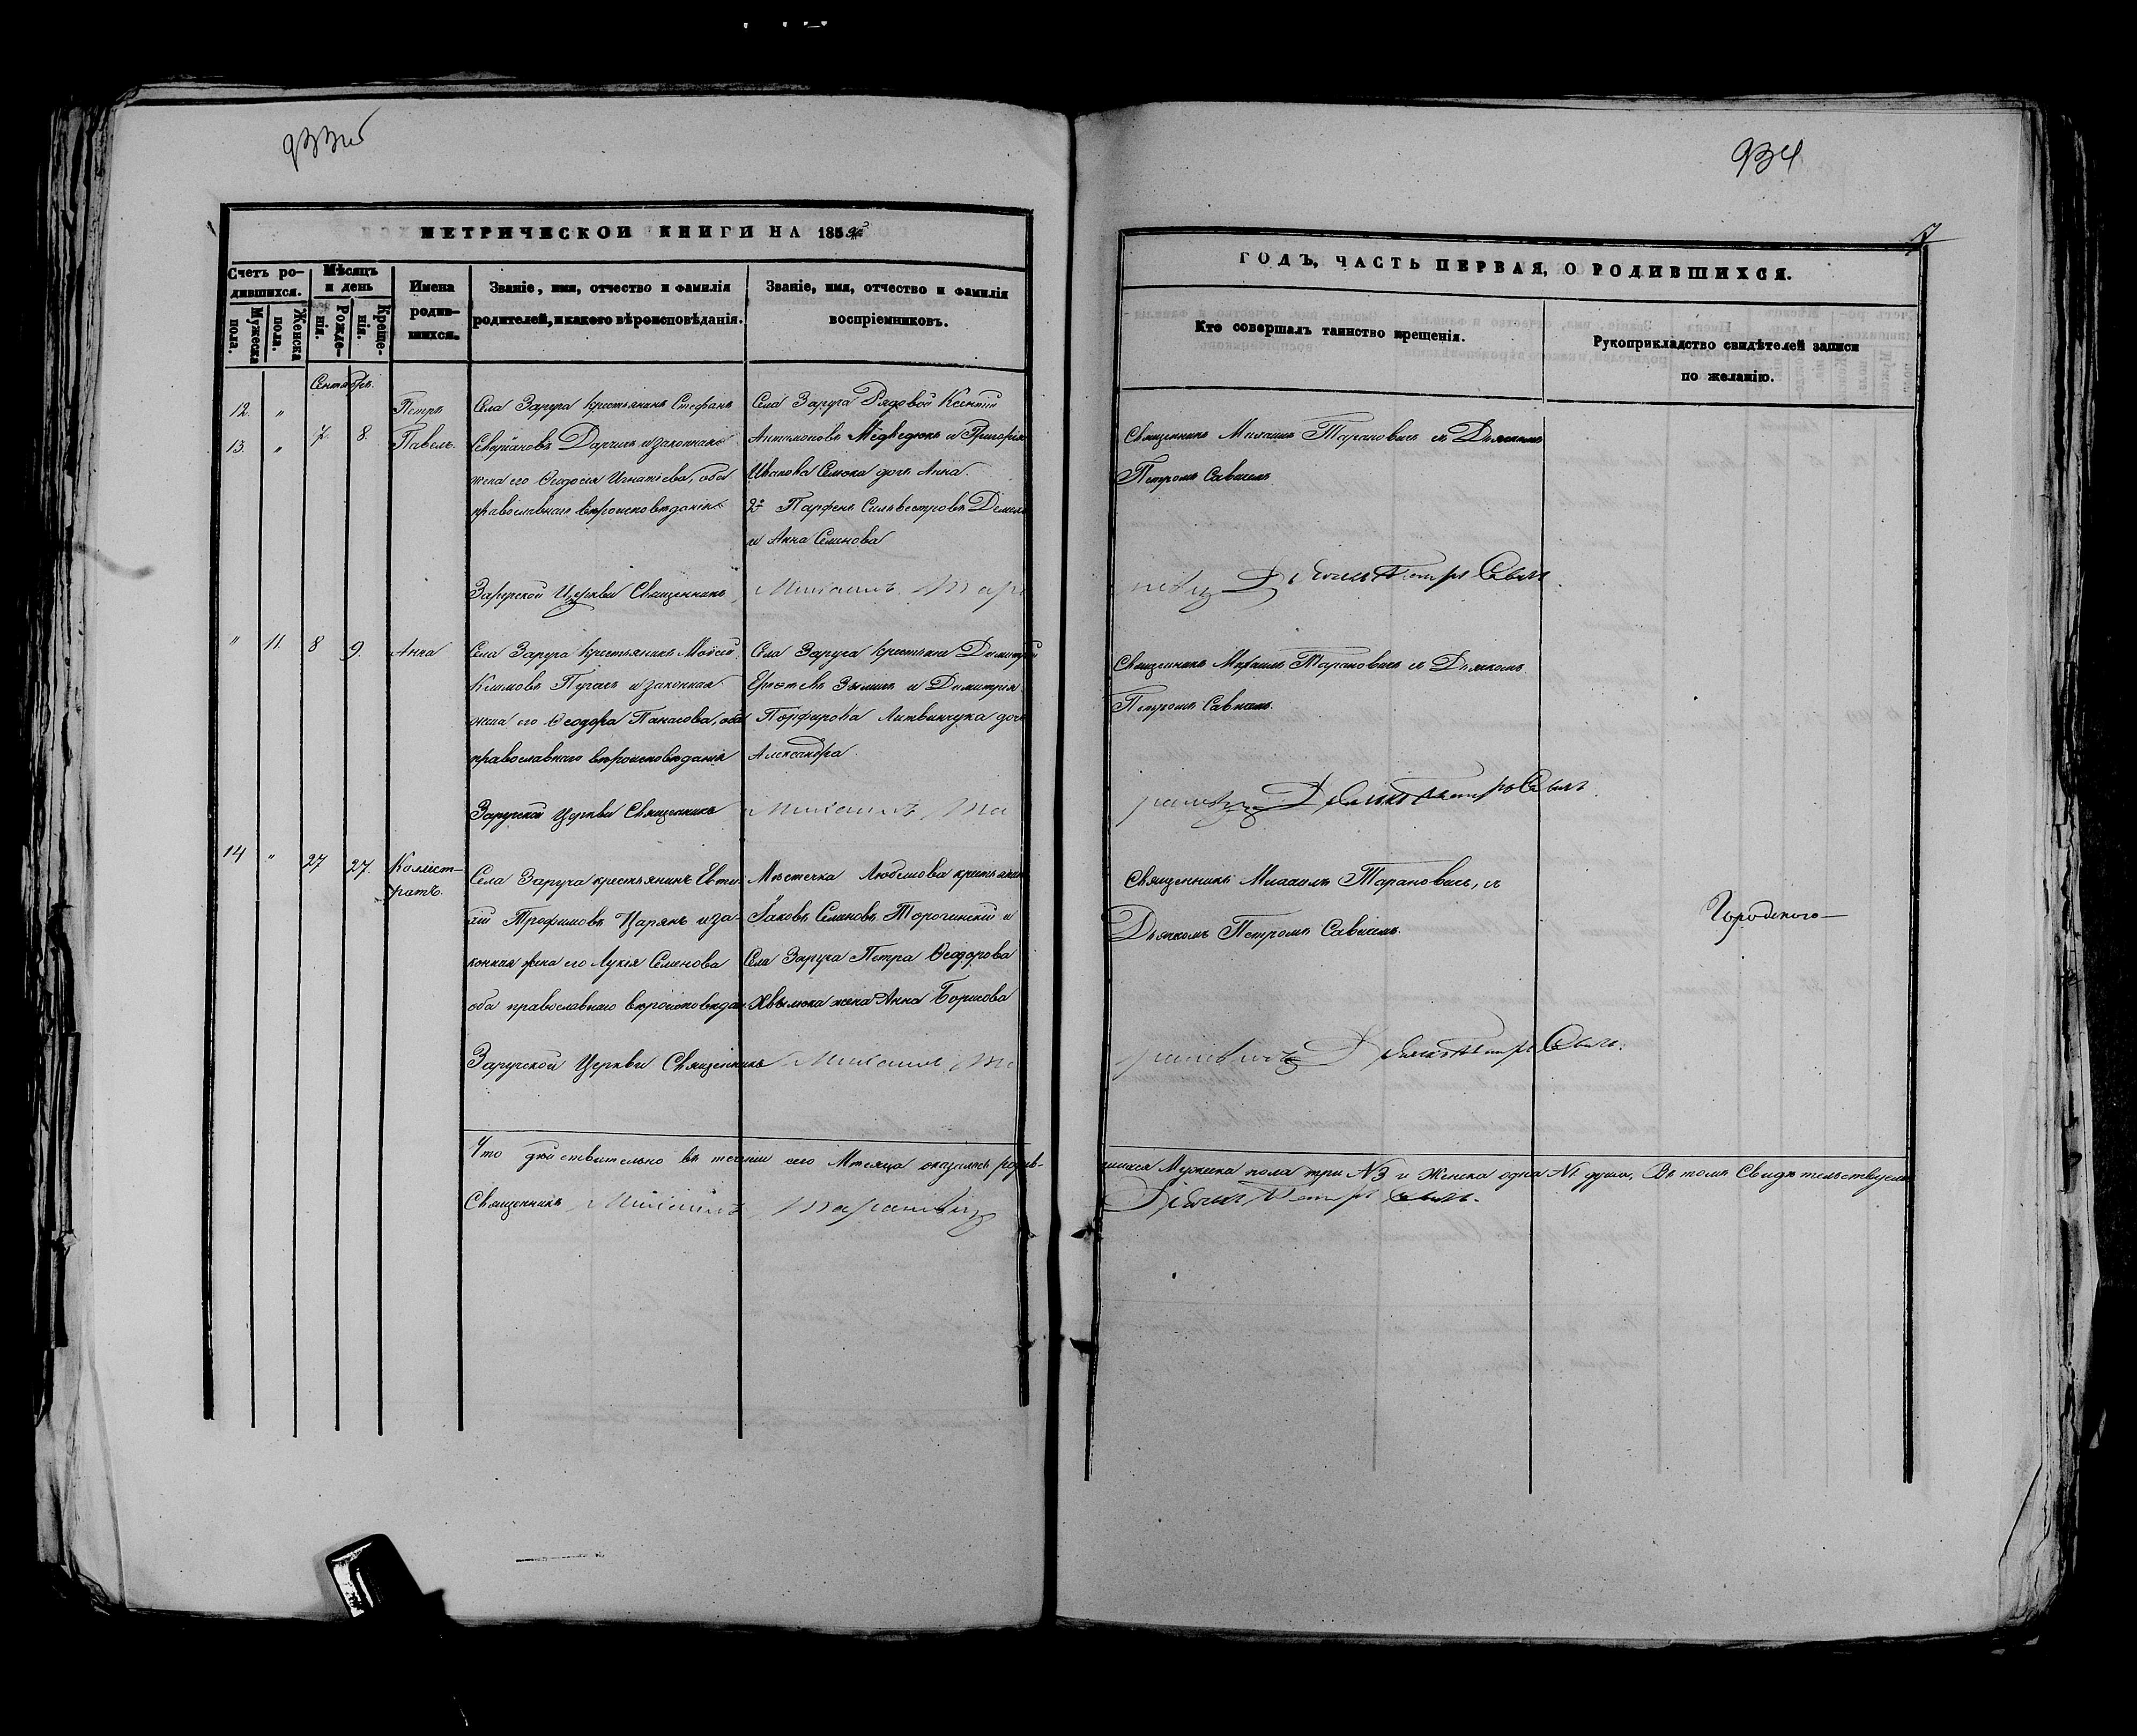 934
МЕТРИЧЕСКОЙ КНИГИ НА 185
Счетъ ро-
дившихся.
Мужеска пола.
Женска пола.
Мѣсяцъ и день
Рожде-нія.
Креще-нія.
Имена
родив-
шихся.
Званіе, имя, отчество и фамилія
родителей, и какого вѣроисповѣданія.
Званіе, имя, отчество и фамилія
воспріемниковъ.
Сентябрь.
12. " Петръ
13. " 7. 8. Павелъ.
Села Заруча крестьянинъ Стефанъ
и законная
жена его Ѳеодосія Игнатіева, оба
православнаго вѣроисповѣданія
Села Заруча Рядовой
Антимоновъ Медведюкъ и Григорія
Иванова Семока дочь Анна.
2й Парфенъ Сильвестровъ
и Анна Семенова
Заруской Церкви Священникъ Михаилъ Тара
" 11. 8 9. Анна
Села Заруча крестьянинъ Мойсей
Климовъ Пугачъ и законная
жена его Ѳеодора Панасова, оба
православнаго вѣроисповѣданія
Села Заруча крестьяне Димитрій
и Димитрія
Порфирова Литвинчука дочь
Александра.
Заруской Церкви Священникъ Михаилъ Та
14 " 27 27. Каллист-
ратъ.
Села Заруча крестьянинъ Евти-
хій Трофимовъ Царикъ и за-
конная жена его Лукія Семенова
оба православнаго вѣроисповѣдан.
Мѣстечка Любешова крестьянинъ
Іаковъ Семеновъ Торогинскій и
Села Заруча Петра Ѳеодорова
жена Анна Борисова
Заруской Церкви Священникъ Михаилъ Та
Что дѣйствительно въ теченіи сего Мѣсяца оказалось родив-
Священникъ Михаилъ Таранович
ГОДЪ, ЧАСТЬ ПЕРВАЯ, О РОДИВШИХСЯ.
Кто совершалъ таинство крещенія.
Рукоприкладство свидѣтелей записи
по желанію.
Священникъ Михаилъ Тарановичъ съ Дьячкомъ
Петромъ Савичемъ.
Дьячекъ Петръ Савич
Священникъ Михаилъ Тарановичъ съ Дьячкомъ
Петромъ Савичемъ.
Дьячекъ Петръ Савич
Священникъ Михаилъ Тарановичъ, съ
Дьячкомъ Петромъ Савичемъ.
Городского
Дьячекъ Петръ Савич
шихся Мужеска пола три №3 и Женска одна №1 душа, Въ томъ Свидѣтельствуемъ
Дьячекъ Петръ Савич.